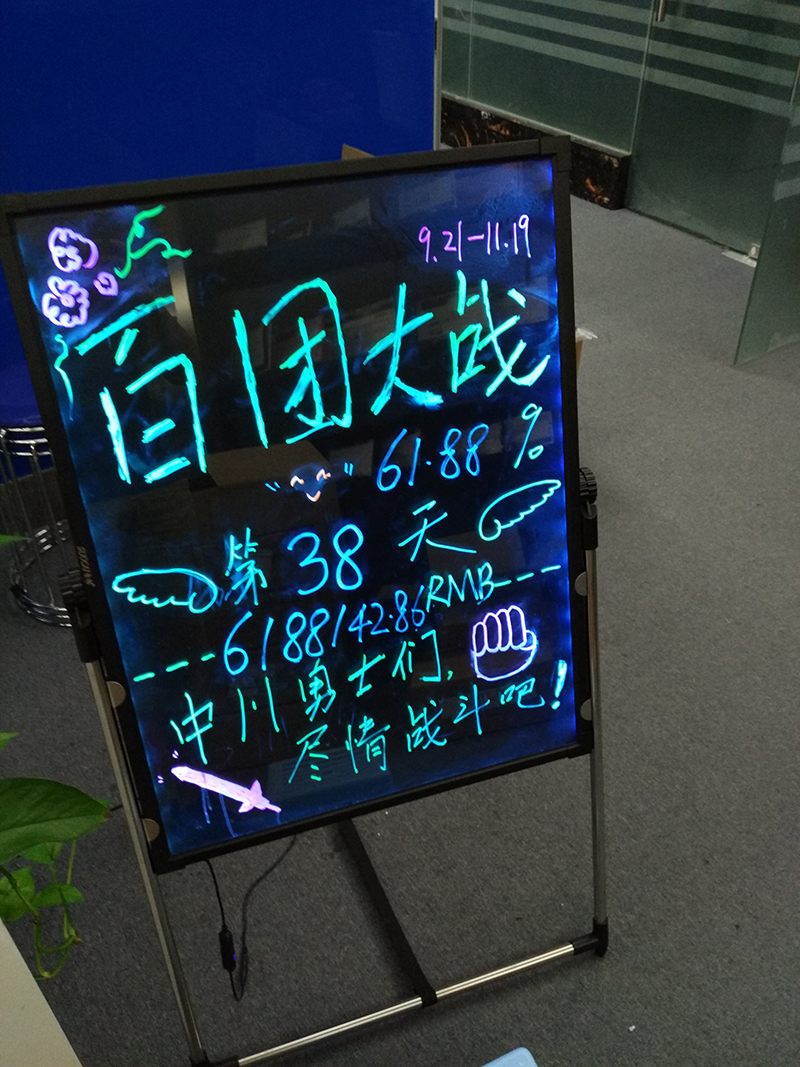 9.21-11.19
百团大战
61.88%
第38天
6188142.86RMB
中川勇士们,
尽情战斗吧!